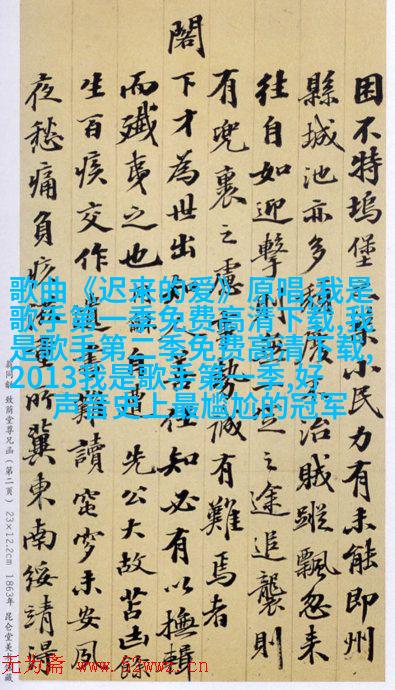 困不特塢堡小民力有未能即州
縣城池亦多治賊蹤飄忽来
往自如迎擊則之途追襲則
有兜裹之慮事勢誠有難焉者
閣下才為世出如任知必有以撫輯
而殲夷之也龢自遭先公大故苦凷餘
生百疾交作難讀未安風
夜愁痛負疚重所冀東南綏靖得
歌曲《迟来的爱》原唱,我是
歌手第一季免费高清下载,我
是歌手第二季免费高清下载,
2013我是歌手第一季,好
声音史上最尴尬的冠军
翁同龢 致荫堂尊兄函（第二页） 23×12.2cm 1863年 昆仑堂美术馆藏
无为斋 www.52wwz.cn